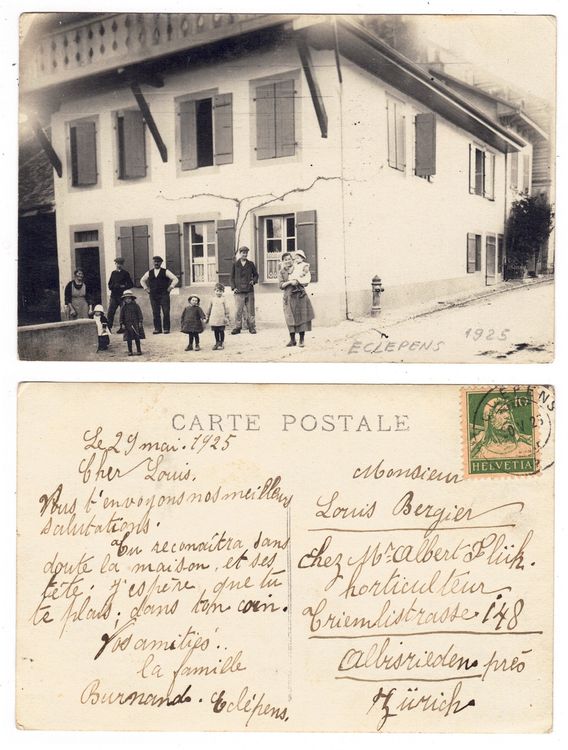 ECLEPENS 1925
CARTE POSTALE
Le 29 mai. 1925
Cher Louis.
Vous t'envoyons nos meilleurs
salutations.
Tu reconaîtra sans
doute la maison, et ses
tété. j'espère, que tu
te plais, dans ton coin.
Vos amitiés..
la famille
Burnand. Eclépens.
Monsieur
Louis Bergier
chez Mr. Albert Flük.
horticulteur
Triemlistrasse 148
Albisrieden près
Zürich.
10
HELVETIA